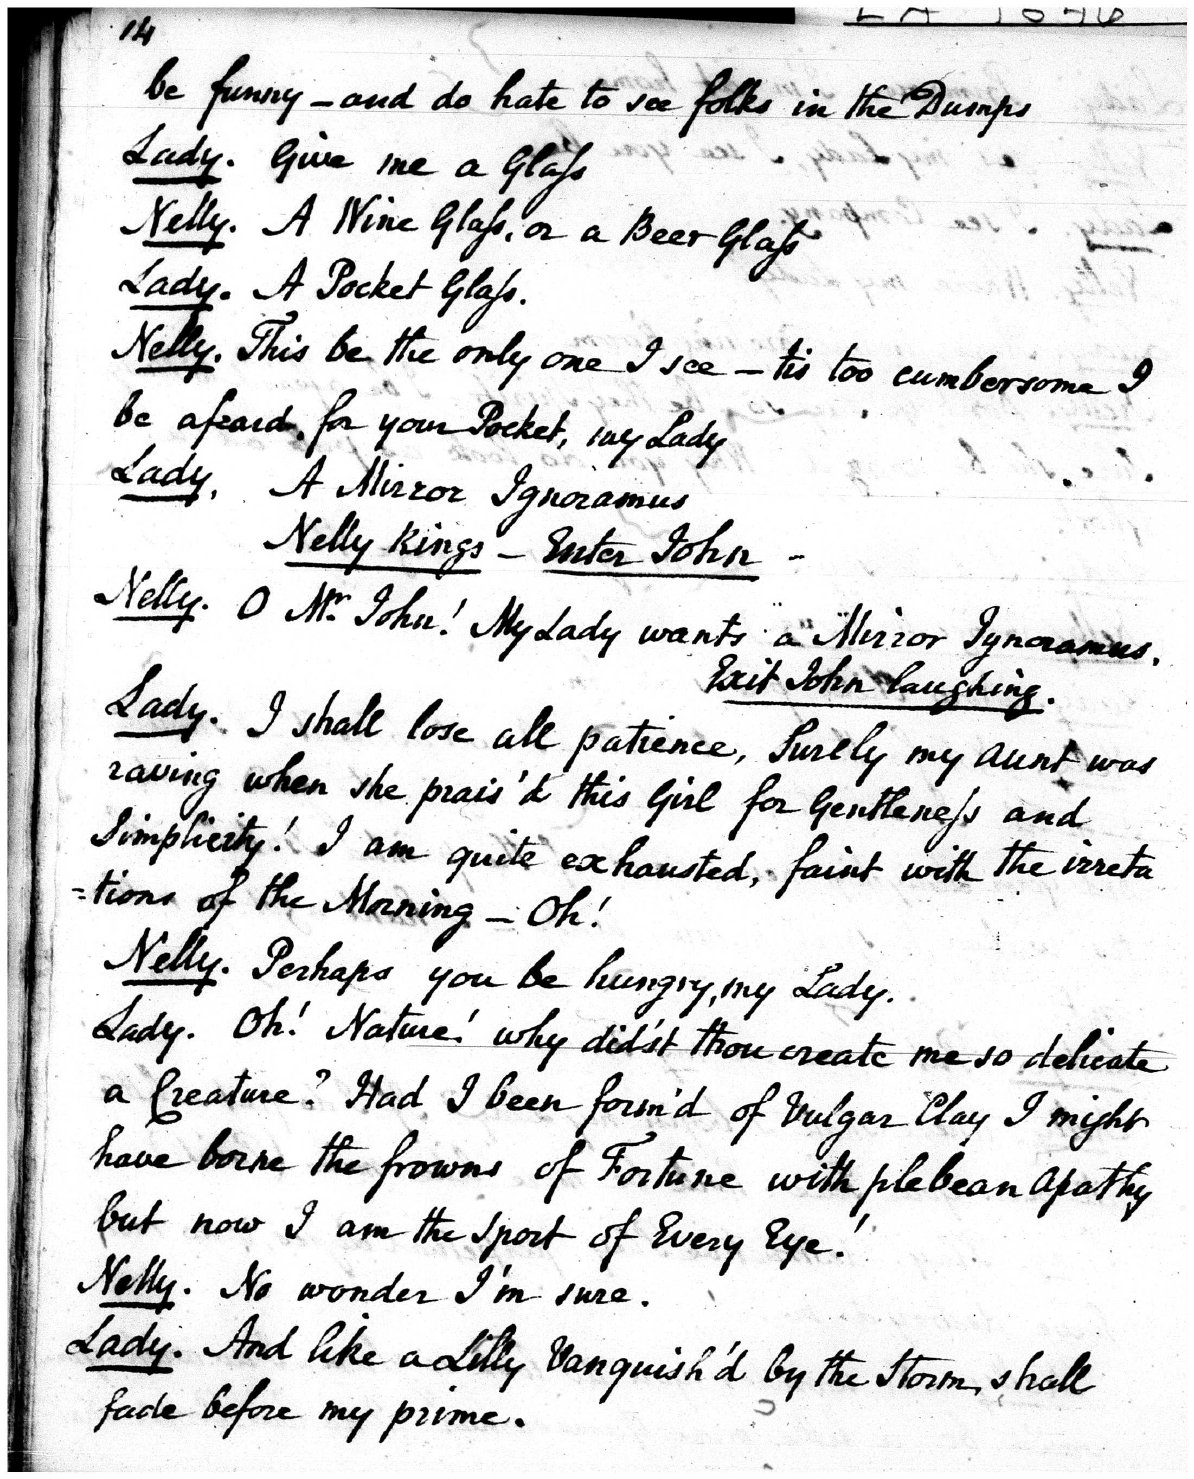 14
be funny – and do hate to see folks in the Dumps
Lady. Give me a Glaſs
Nelly. A Wine Glaſs, or a Beer Glaſs
Lady. A Pocket Glaſs.
Nelly. This be the only one I see – tis too cumbersome I
be afeard, for your Pocket, my Lady
Lady. A Mirror Ignoramus
Nelly Rings – Enter John –
Nelly. O Mr. John! My Lady wants "a" Mirror Ignoramus.
Exit John laughing.
Lady. I shall lose all patience, Surely my Aunt was
raving when she prais'd this Girl for Gentleneſs and
Simplicity! I am quite exhausted, faint with the irreta
=tions of the Morning – Oh!
Nelly. Perhaps you be hungry, my Lady.
Lady. Oh! Nature! why did'st thou create me so delicate
a Creature? Had I been form'd of Vulgar Clay I might
have borne the frowns of Fortune with plebean Apathy
but now I am the sport of Every Eye!
Nelly. No wonder I'm sure.
Lady. And like a Lilly Vanquish'd by the Storm, shall
fade before my prime.